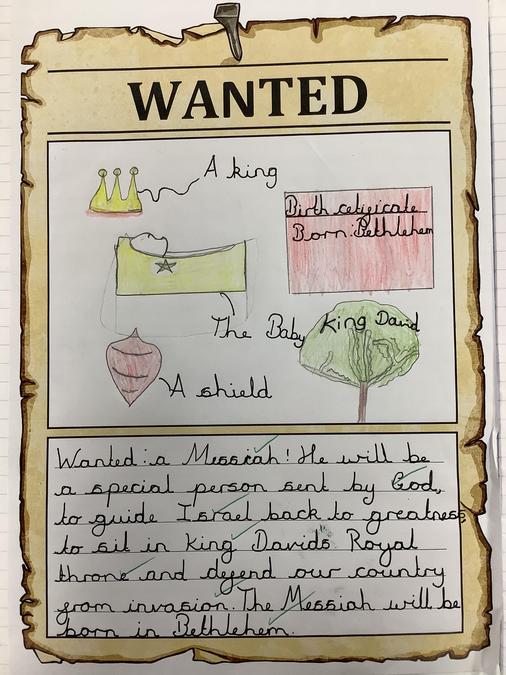 WANTED
A king
Birth cetificate
Born: Bethlehem
The Baby
King David
A shield
Wanted: a Messiah! He will be
a special person sent by God,
to guide Israel back to greatness
to sit in King David's Royal
throne and defend our country
from invasion. The Messiah will be
born in Bethlehem.